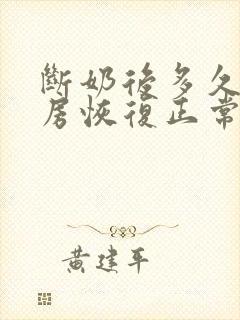 斷奶後多久
房恢復正常
黃建平